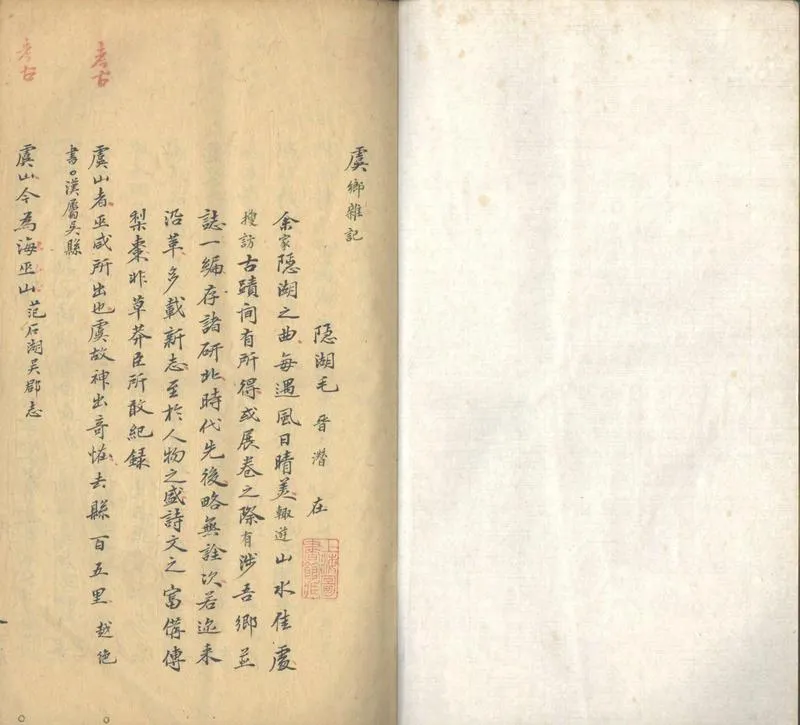 虞鄉雜記
隱湖毛晉潛在
余家隱湖之曲每遇風日晴美輙遊山水佳處
搜訪古蹟间有所得或展卷之際有涉吾鄉並
誌一編存諸研北時代先後略無詮次若近来
沿革多載新志至於人物之盛詩文之富僃傳
梨棗非草莽臣所敢紀録
虞山者巫咸所出也虞故神出奇怪去縣百五里越絶
書○漢屬吳縣
虞山今為海巫山范石湖吳郡志
考古
考古
上海圖書館藏